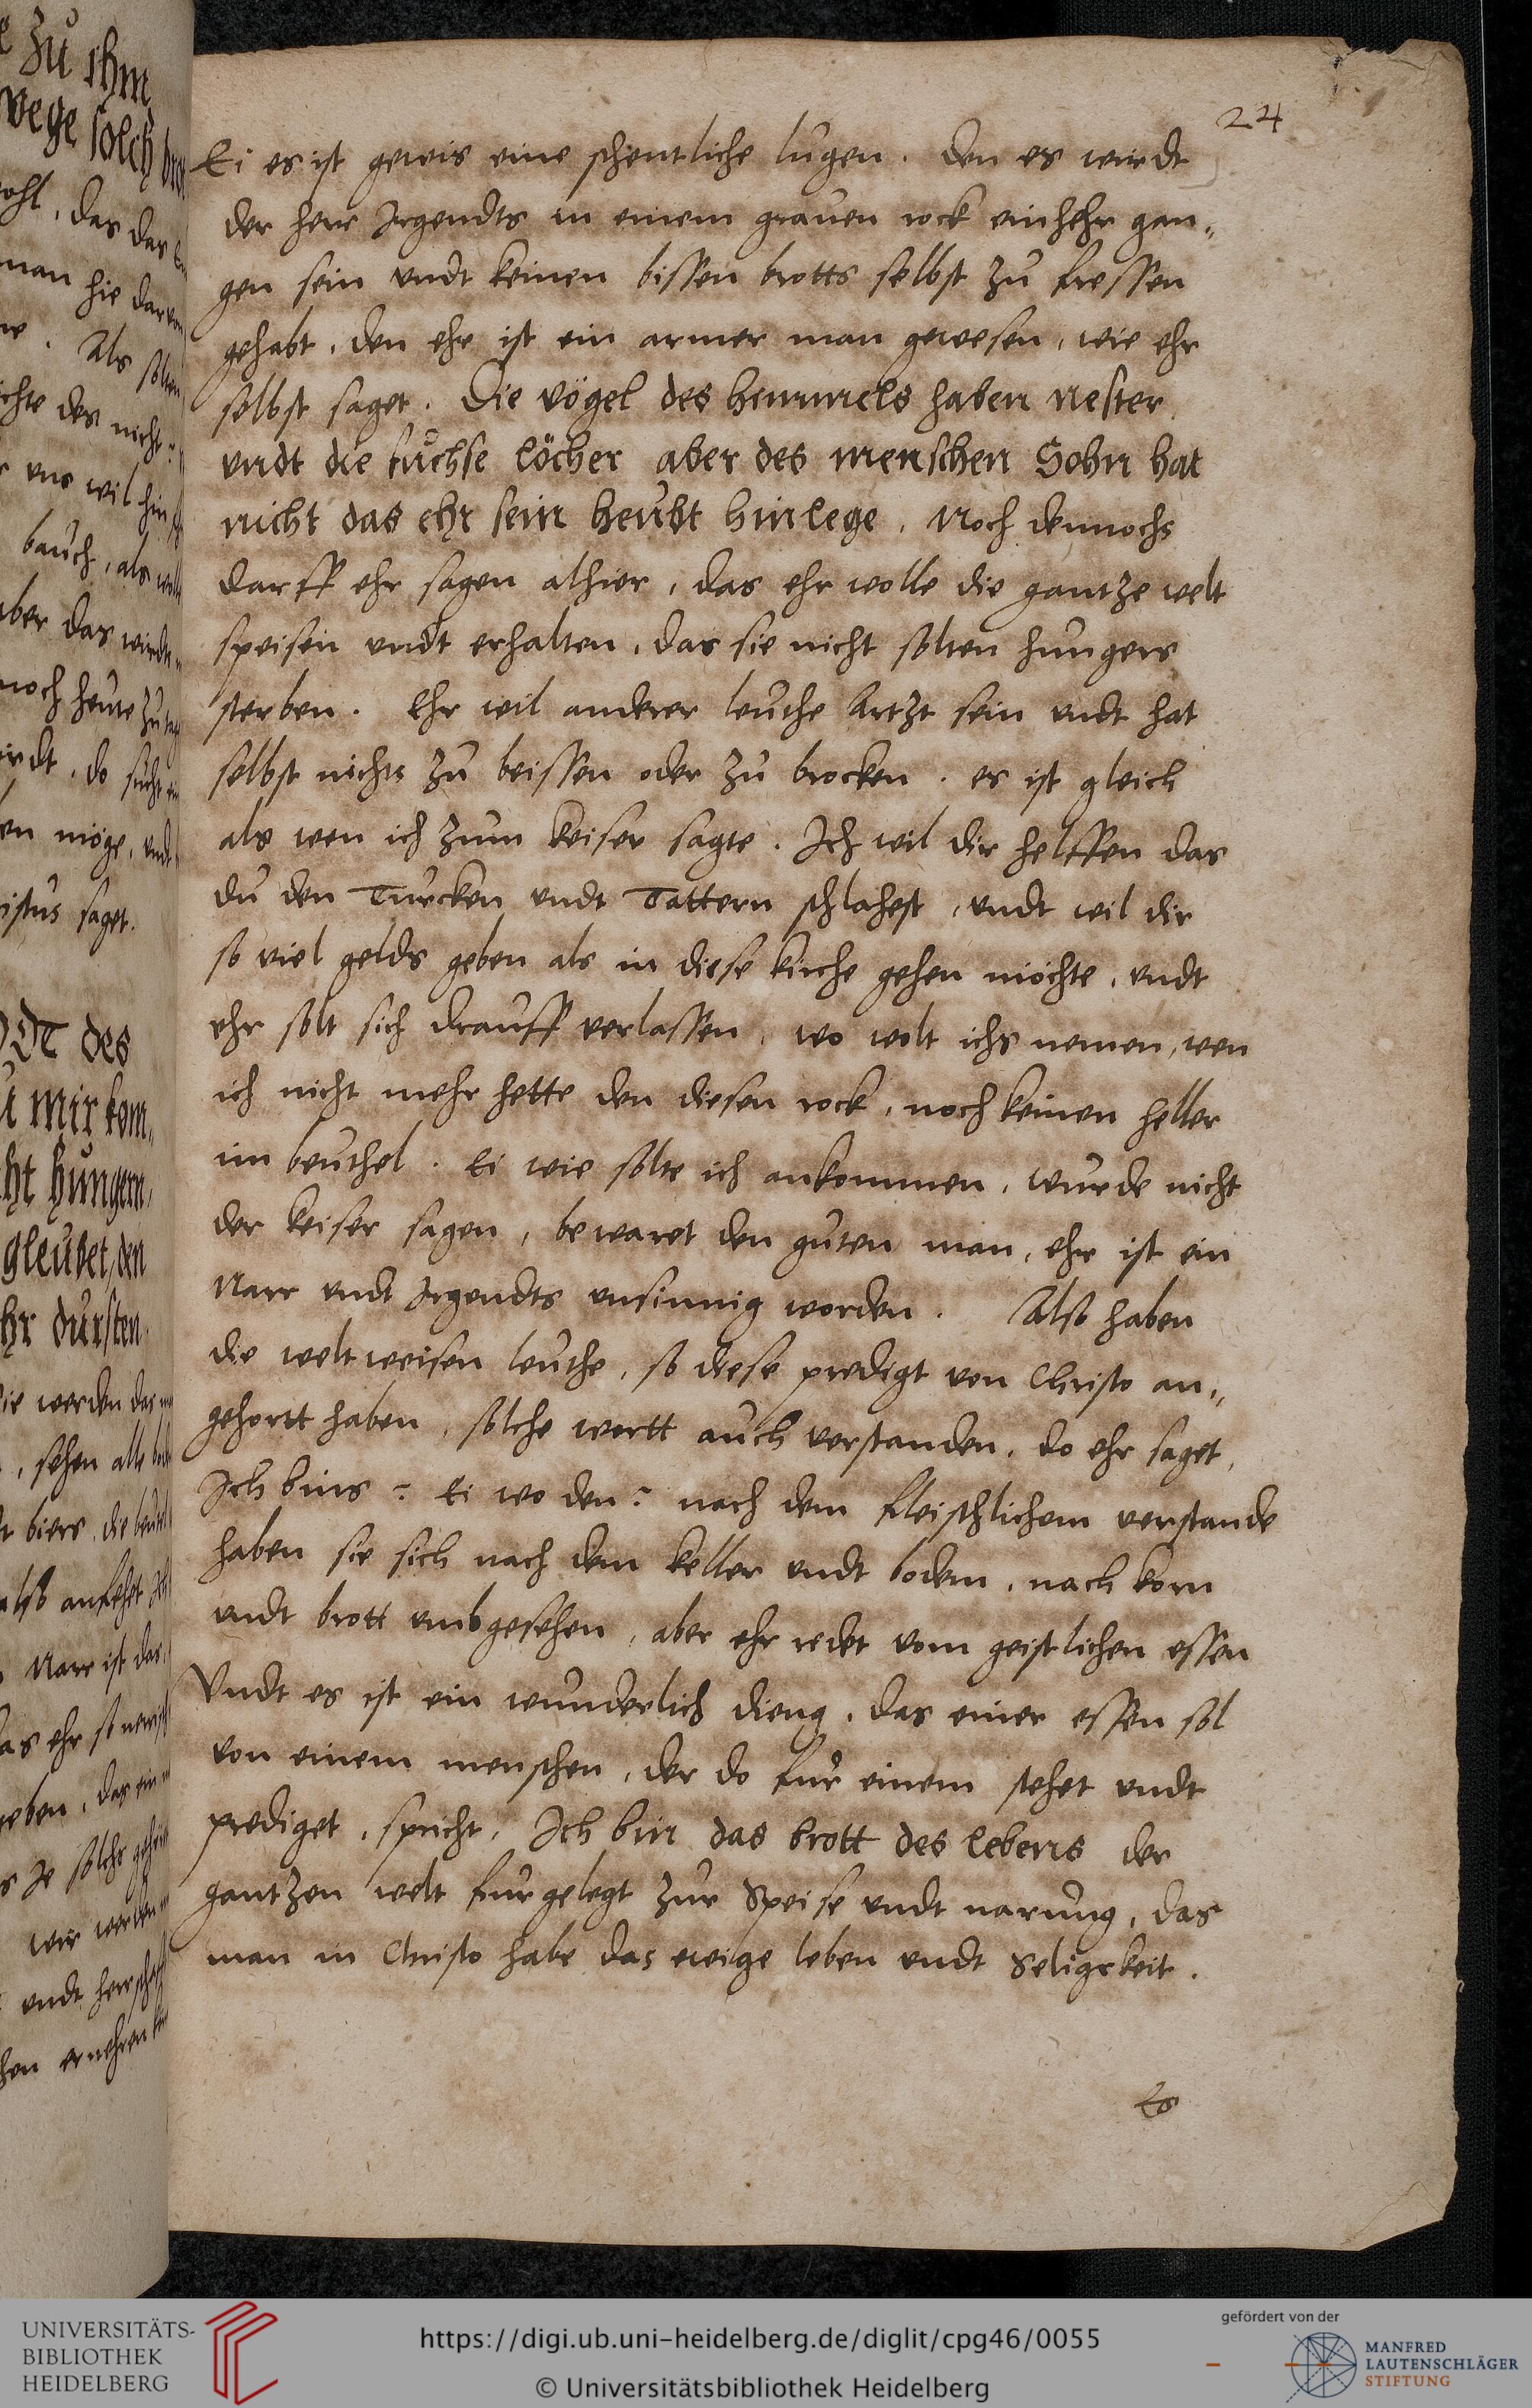 24
Ei es ist gewis eine schentliche lugen. den es wirdt
der herr Irgendts in einem grauen rock einhehr gan„
gen sein undt keinen bissen brotts selbst zu fressen
gehabt, den ehr ist ein armer man gewesen, wie ehr
selbst saget. Die vögel des himmels haben nester
undt die fuchse löcher aber des menschen Sohn hat
nicht das ehr sein heubt hinlege. Noch dennochs
darff ehr sagen alhier, das ehr wolle die gantze welt
speisen undt erhalten, das sie nicht solten hungers
sterben. Ehr wil anderer leuthe Artzt sein undt hat
selbst nichts zu beissen oder zu brocken. es ist gleich
als wen ich zum keiser sagte. Ich wil dir helffen das
du den Turcken undt Tattern schlahest, undt wil dir
so viel gelds geben als in diese kirche gehen möchte, undt
ehr solt sich drauff verlassen, wo wolt ichs nemen, wen
ich nicht mehr hette den diesen rock, noch keinen heller
im beuthel. Ei wie solte ich ankommen, wurde nicht
der keiser sagen, bewaret den guten man, ehr ist ein
Narr undt Irgendts unsinnig worden. Also haben
die weltweisen leuthe, so diese predigt von Christo an„
gehortt haben, solche wortt auch verstanden, do ehr saget,
Ich bins? Ei wo den? nach dem fleischlichem verstande
haben sie sich nach dem keller undt bodem, nach korn
undt brott umbgesehen, aber ehr redet vom geistlichen essen
Undt es ist ein wunderlich dieng, das einer essen sol
von einem menschen, der do fur einem stehet undt
prediget, spricht, Ich bin das brott des lebens der
gantzen welt furgelegt zur Speise undt narung, das
man in Christo habe das ewige leben undt Seligkeit.
Es
zu ihm
wege solch
das das
man hie
Als solten
des nicht?
uns wil hin
bauch, als
aber das wirdt
noch heute zu
do sucht
möge, undt
saget.
des
mir kom„
hungern,
gleubet, den
dursten.
werden das
, sehen alle
biers, die
also anfehet
Narr ist das
das ehr so
das ein
solchs
wir werden
undt herrschafft
ernehren
UNIVERSITÄTS-
BIBLIOTHEK
HEIDELBERG
https://digi.ub.uni-heidelberg.de/diglit/cpg46/0055
© Universitätsbibliothek Heidelberg
gefördert von der
MANFRED
LAUTENSCHLÄGER
STIFTUNG